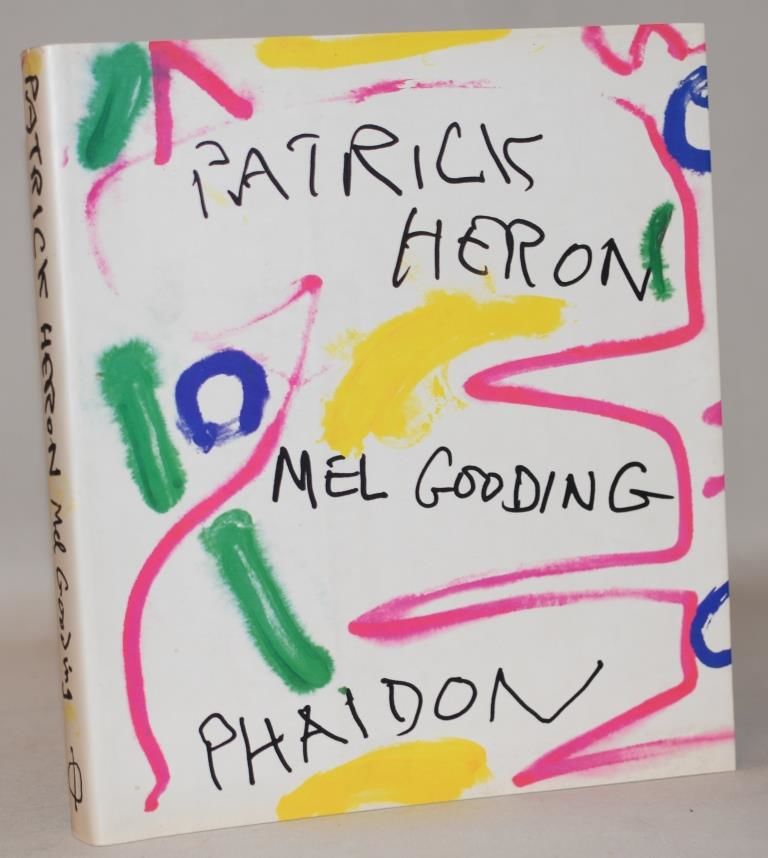 PATRICK
HERON
MEL GOODING
PHAIDON
PATRICK HERON Mel Gooding